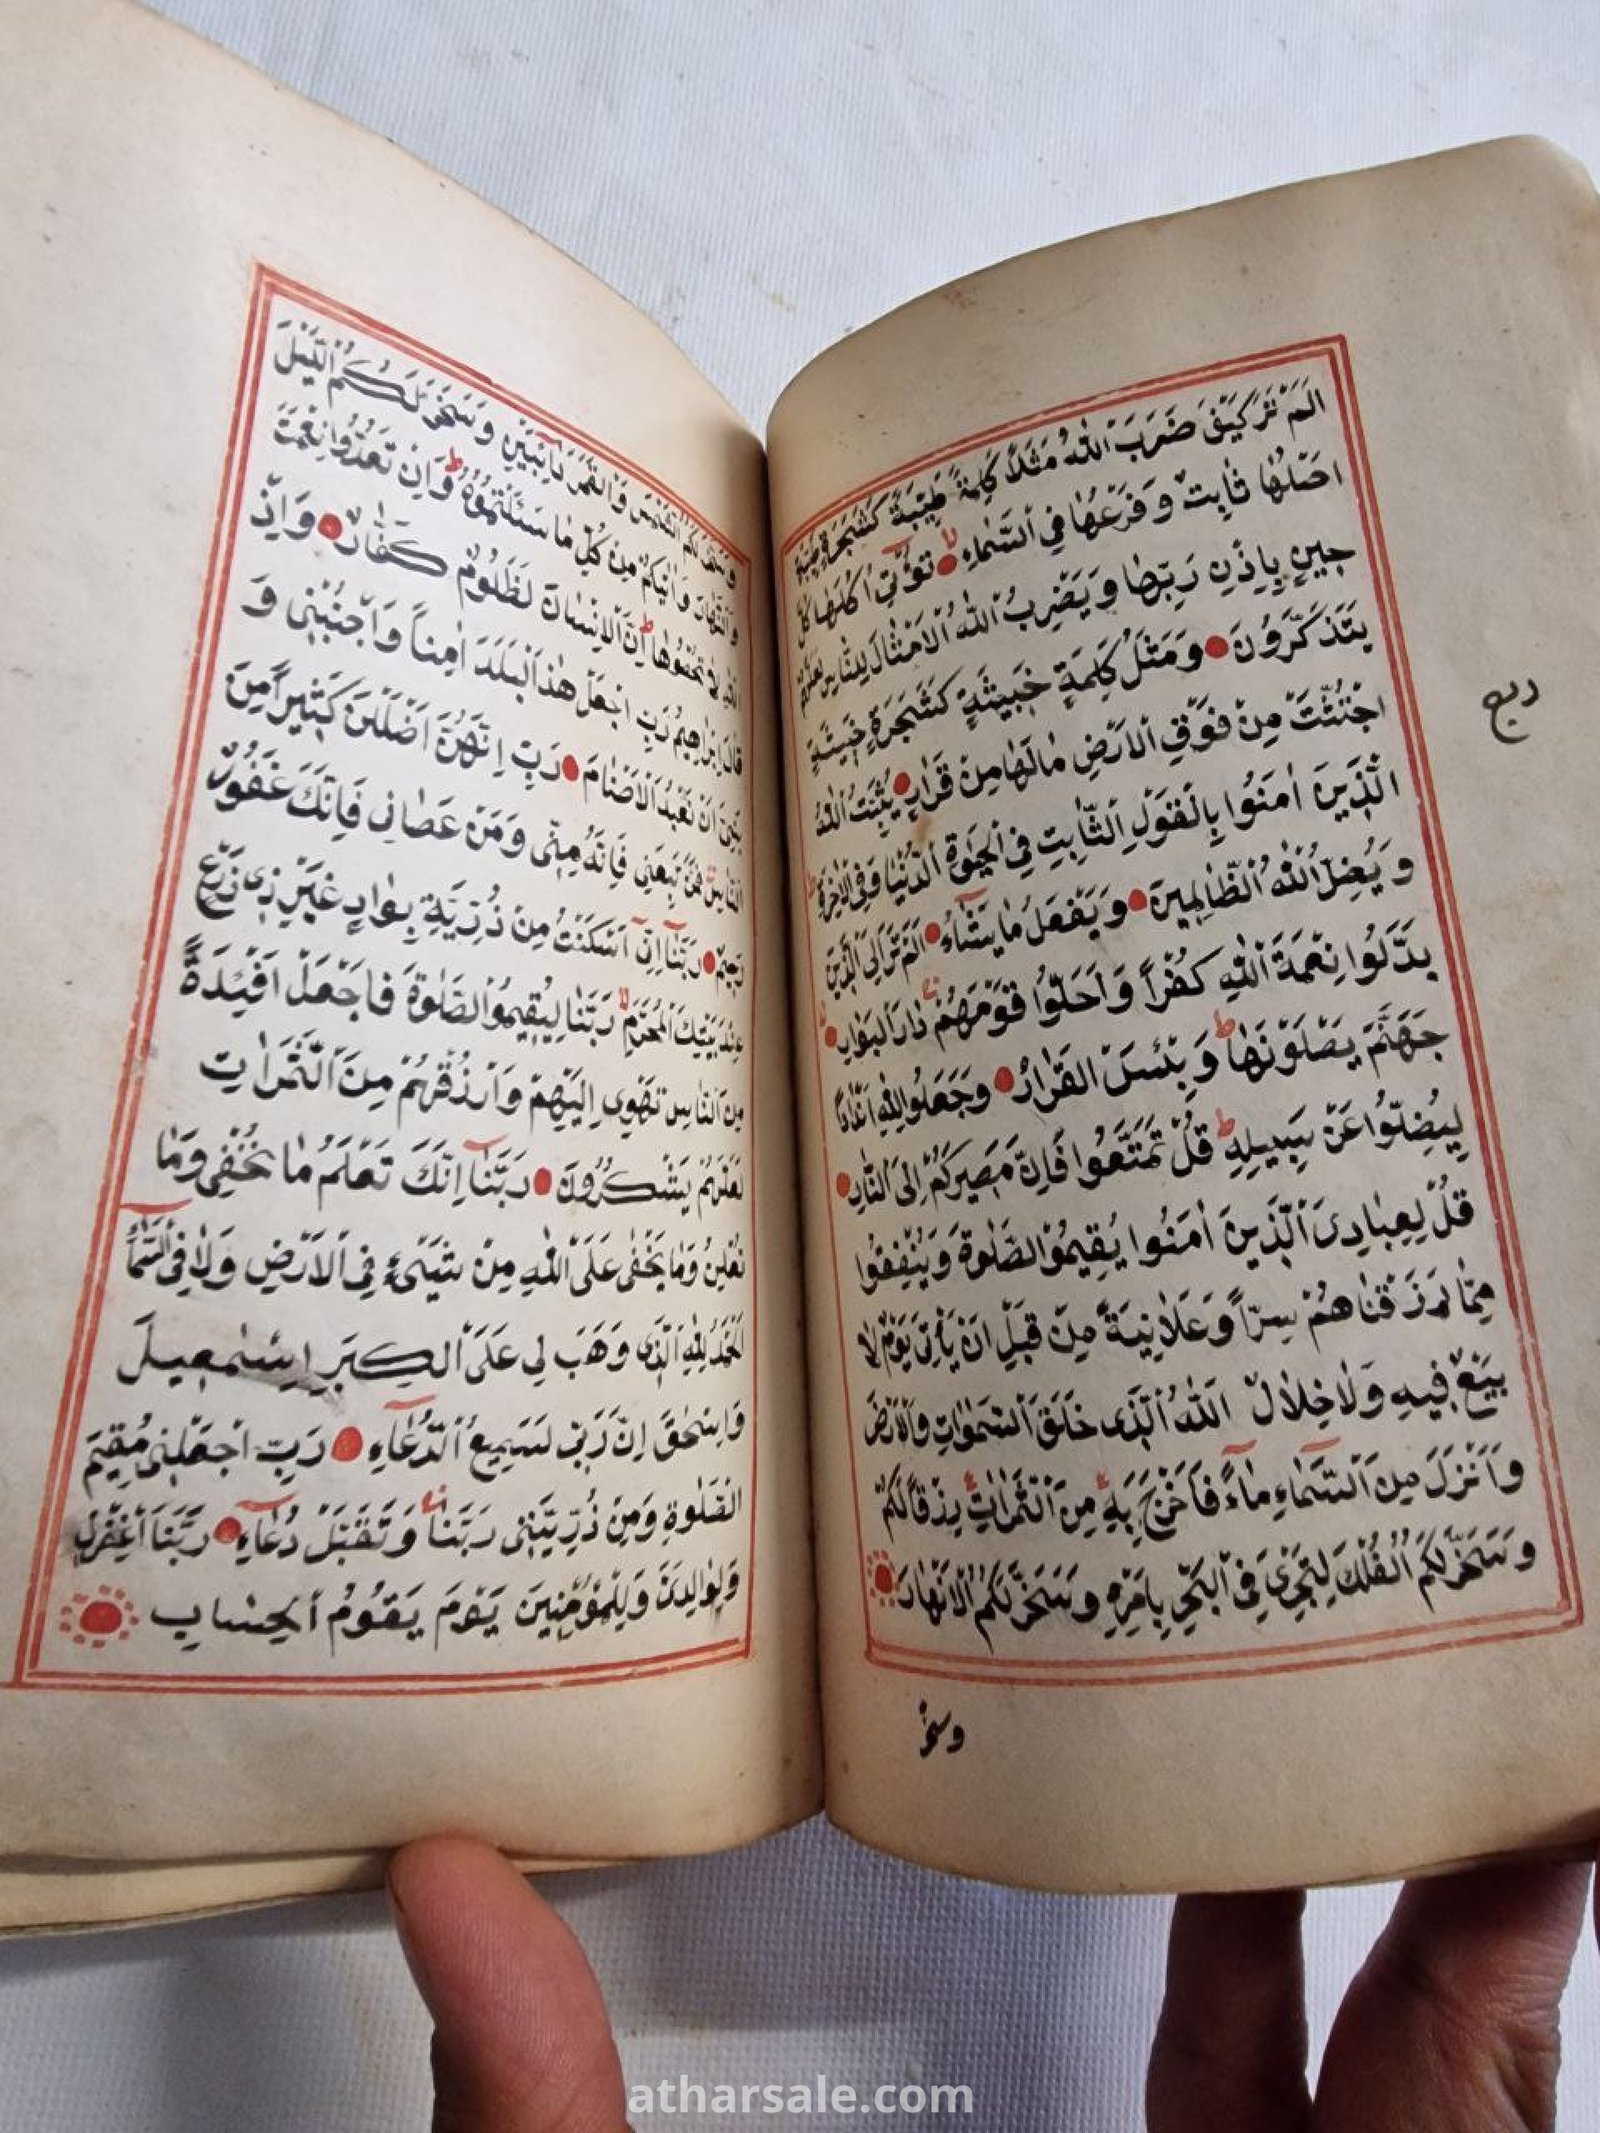 اَلَمْ تَرَ كَيْفَ ضَرَبَ اللّٰهُ مَثَلًا كَلِمَةً طَيِّبَةً كَشَجَرَةٍ طَيِّبَةٍ
اَصْلُهَا ثَابِتٌ وَفَرْعُهَا فِي السَّمَاءِ تُؤْتِي اُكُلَهَا كُلَّ
حِينٍ بِاِذْنِ رَبِّهَا وَيَضْرِبُ اللّٰهُ الْاَمْثَالَ لِلنَّاسِ لَعَلَّهُمْ
يَتَذَكَّرُونَ وَمَثَلُ كَلِمَةٍ خَبِيثَةٍ كَشَجَرَةٍ خَبِيثَةٍ
اجْتُثَّتْ مِنْ فَوْقِ الْاَرْضِ مَا لَهَا مِنْ قَرَارٍ يُثَبِّتُ اللّٰهُ
الَّذِينَ اٰمَنُوا بِالْقَوْلِ الثَّابِتِ فِي الْحَيٰوةِ الدُّنْيَا وَفِي الْاٰخِرَةِ
وَيُضِلُّ اللّٰهُ الظَّالِمِينَ وَيَفْعَلُ مَا يَشَاءُ اَلَمْ تَرَ اِلَى الَّذِينَ
بَدَّلُوا نِعْمَةَ اللّٰهِ كُفْرًا وَاَحَلُّوا قَوْمَهُمْ دَارَ الْبَوَارِ
جَهَنَّمَ يَصْلَوْنَهَا وَبِئْسَ الْقَرَارُ وَجَعَلُوا لِلّٰهِ اَنْدَادًا
لِيُضِلُّوا عَنْ سَبِيلِهِ قُلْ تَمَتَّعُوا فَاِنَّ مَصِيرَكُمْ اِلَى النَّارِ
قُلْ لِعِبَادِيَ الَّذِينَ اٰمَنُوا يُقِيمُوا الصَّلٰوةَ وَيُنْفِقُوا
مِمَّا رَزَقْنَاهُمْ سِرًّا وَعَلَانِيَةً مِنْ قَبْلِ اَنْ يَأْتِيَ يَوْمٌ لَا
بَيْعٌ فِيهِ وَلَا خِلَالٌ اَللّٰهُ الَّذِي خَلَقَ السَّمٰوَاتِ وَالْاَرْضَ
وَاَنْزَلَ مِنَ السَّمَاءِ مَاءً فَاَخْرَجَ بِهِ مِنَ الثَّمَرَاتِ رِزْقًا لَكُمْ
وَسَخَّرَ لَكُمُ الْفُلْكَ لِتَجْرِيَ فِي الْبَحْرِ بِاَمْرِهِ وَسَخَّرَ لَكُمُ الْاَنْهَارَ
وسخر
ربع
وَسَخَّرَ لَكُمُ الشَّمْسَ وَالْقَمَرَ دَائِبَيْنِ وَسَخَّرَ لَكُمُ اللَّيْلَ
وَالنَّهَارَ وَاٰتٰيكُمْ مِنْ كُلِّ مَا سَئَلْتُمُوهُ وَاِنْ تَعُدُّوا نِعْمَتَ
اللّٰهِ لَا تُحْصُوهَا اِنَّ الْاِنْسَانَ لَظَلُومٌ كَفَّارٌ وَاِذْ
قَالَ اِبْرٰهِيمُ رَبِّ اجْعَلْ هٰذَا الْبَلَدَ اٰمِنًا وَاجْنُبْنِي وَ
بَنِيَّ اَنْ نَعْبُدَ الْاَصْنَامَ رَبِّ اِنَّهُنَّ اَضْلَلْنَ كَثِيرًا مِنَ
النَّاسِ فَمَنْ تَبِعَنِي فَاِنَّهُ مِنِّي وَمَنْ عَصَانِي فَاِنَّكَ غَفُورٌ
رَحِيمٌ رَبَّنَا اِنِّي اَسْكَنْتُ مِنْ ذُرِّيَّتِي بِوَادٍ غَيْرِ ذِي زَرْعٍ
عِنْدَ بَيْتِكَ الْمُحَرَّمِ رَبَّنَا لِيُقِيمُوا الصَّلٰوةَ فَاجْعَلْ اَفْئِدَةً
مِنَ النَّاسِ تَهْوِي اِلَيْهِمْ وَارْزُقْهُمْ مِنَ الثَّمَرَاتِ
لَعَلَّهُمْ يَشْكُرُونَ رَبَّنَا اِنَّكَ تَعْلَمُ مَا نُخْفِي وَمَا
نُعْلِنُ وَمَا يَخْفٰى عَلَى اللّٰهِ مِنْ شَيْءٍ فِي الْاَرْضِ وَلَا فِي السَّمَاءِ
اَلْحَمْدُ لِلّٰهِ الَّذِي وَهَبَ لِي عَلَى الْكِبَرِ اِسْمٰعِيلَ
وَاِسْحٰقَ اِنَّ رَبِّي لَسَمِيعُ الدُّعَاءِ رَبِّ اجْعَلْنِي مُقِيمَ
الصَّلٰوةِ وَمِنْ ذُرِّيَّتِي رَبَّنَا وَتَقَبَّلْ دُعَاءِ رَبَّنَا اغْفِرْ لِي
وَلِوَالِدَيَّ وَلِلْمُؤْمِنِينَ يَوْمَ يَقُومُ الْحِسَابُ
atharsale.com